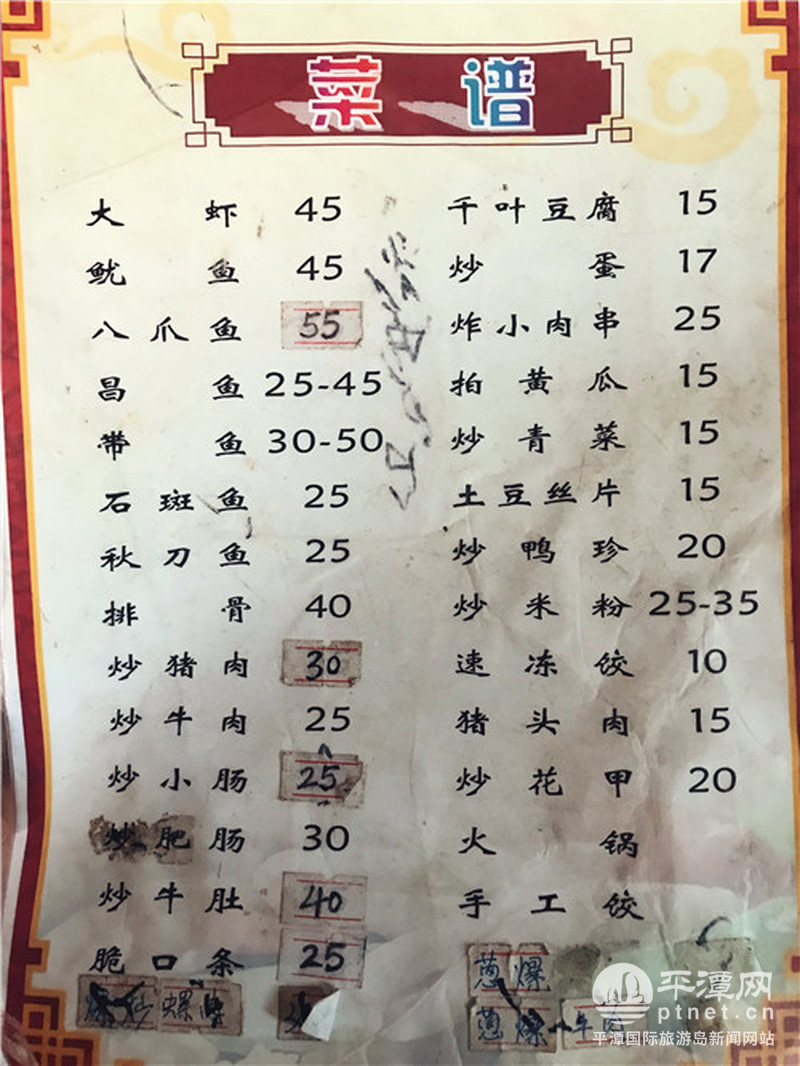 菜谱
大虾 45
鱿鱼 45
八爪鱼 55
昌鱼 25-45
带鱼 30-50
石斑鱼 25
秋刀鱼 25
排骨 40
炒猪肉 30
炒牛肉 25
炒小肠 25
炒肥肠 30
炒牛肚 40
脆口条 25
炒螺
千叶豆腐 15
炒蛋 17
炸小肉串 25
拍黄瓜 15
炒青菜 15
土豆丝片 15
炒鸭珍 20
炒米粉 25-35
速冻饺 10
猪头肉 15
炒花甲 20
火锅
手工饺
葱爆
葱爆牛
平潭网
ptnet.cn
平潭国际旅游岛新闻网站